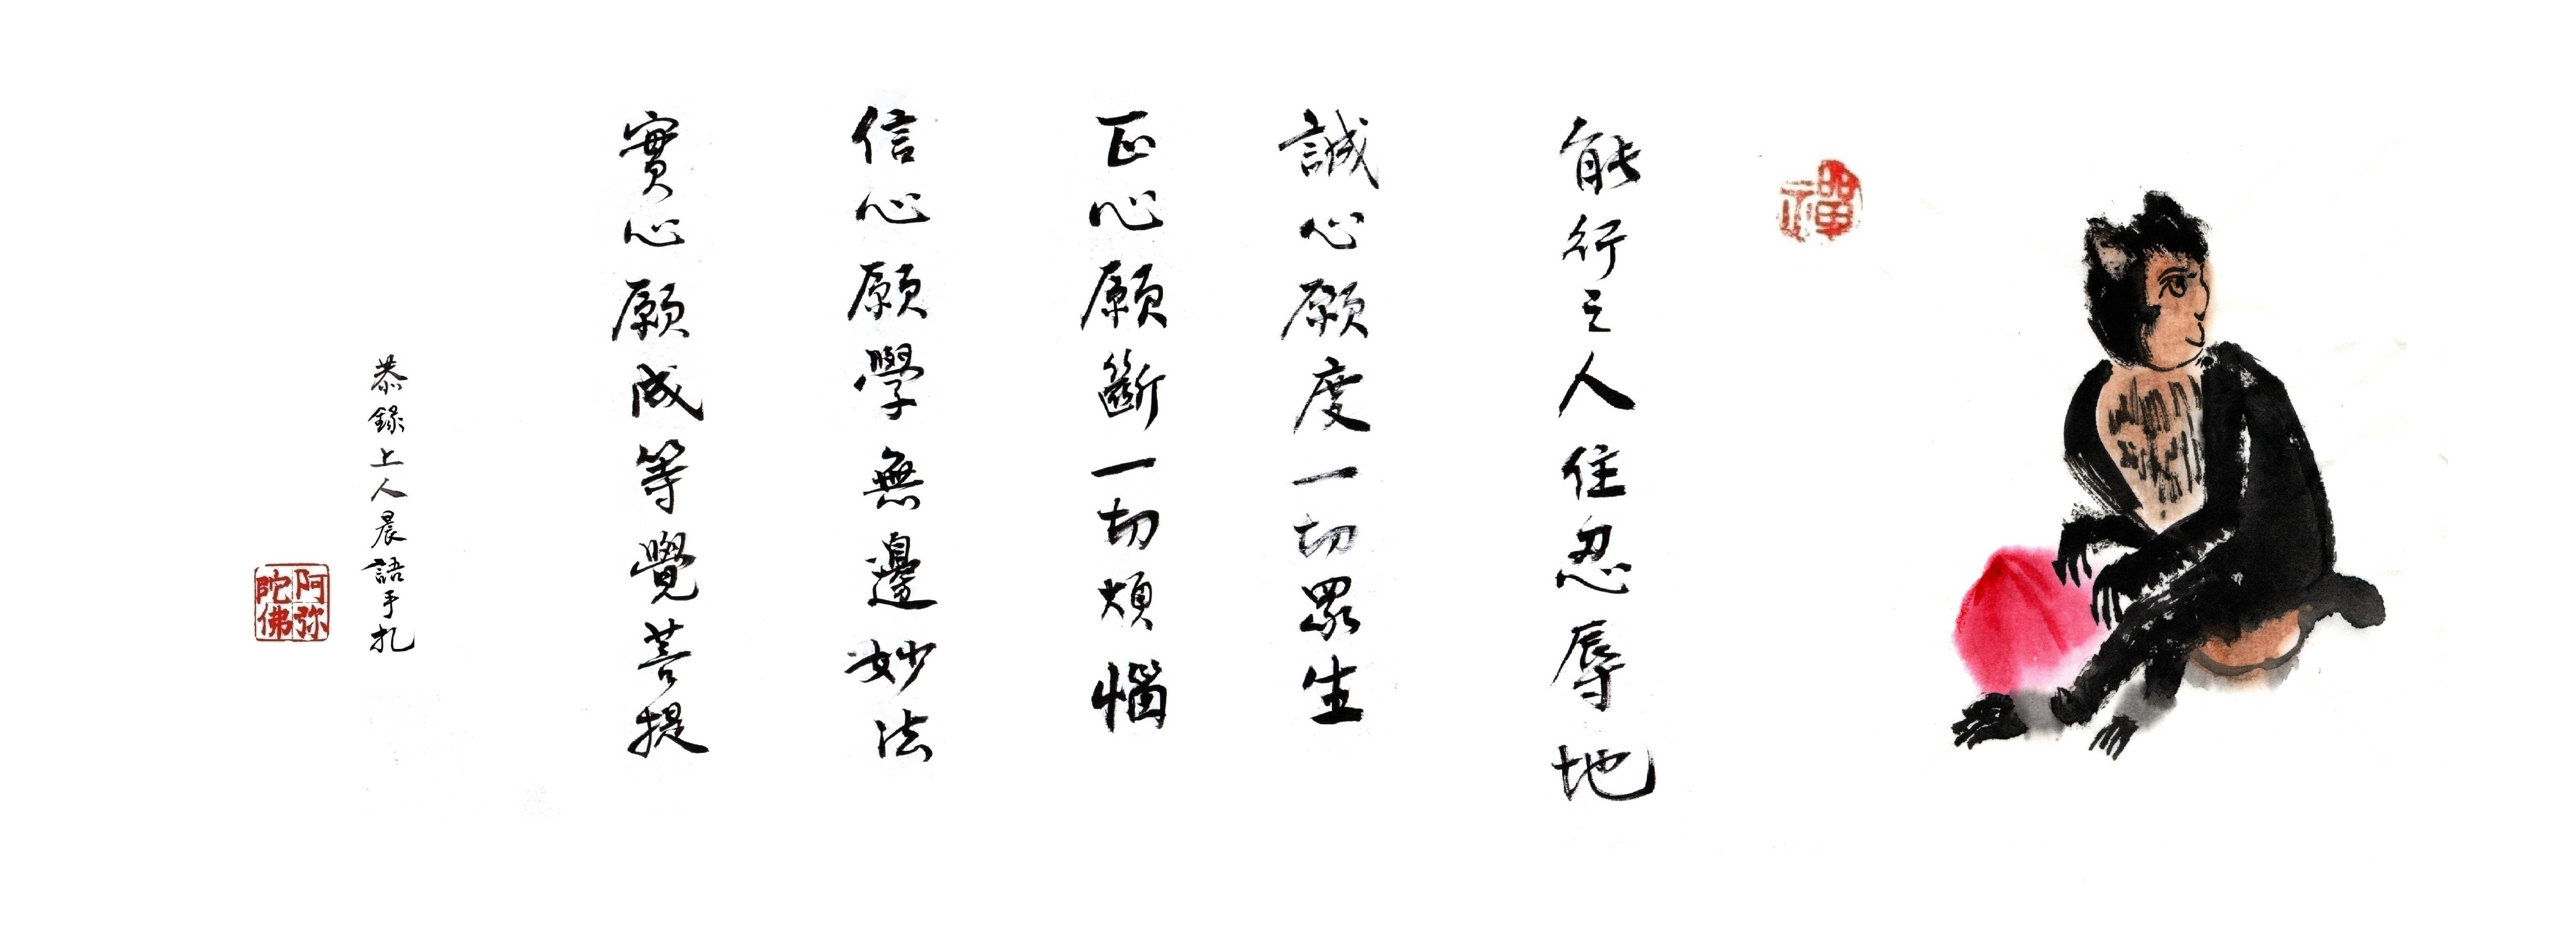 禪
能行之人住忍辱地
誠心願度一切眾生
正心願斷一切煩惱
信心願學無邊妙法
實心願成等覺菩提
恭錄上人晨語手扎
阿弥陀佛